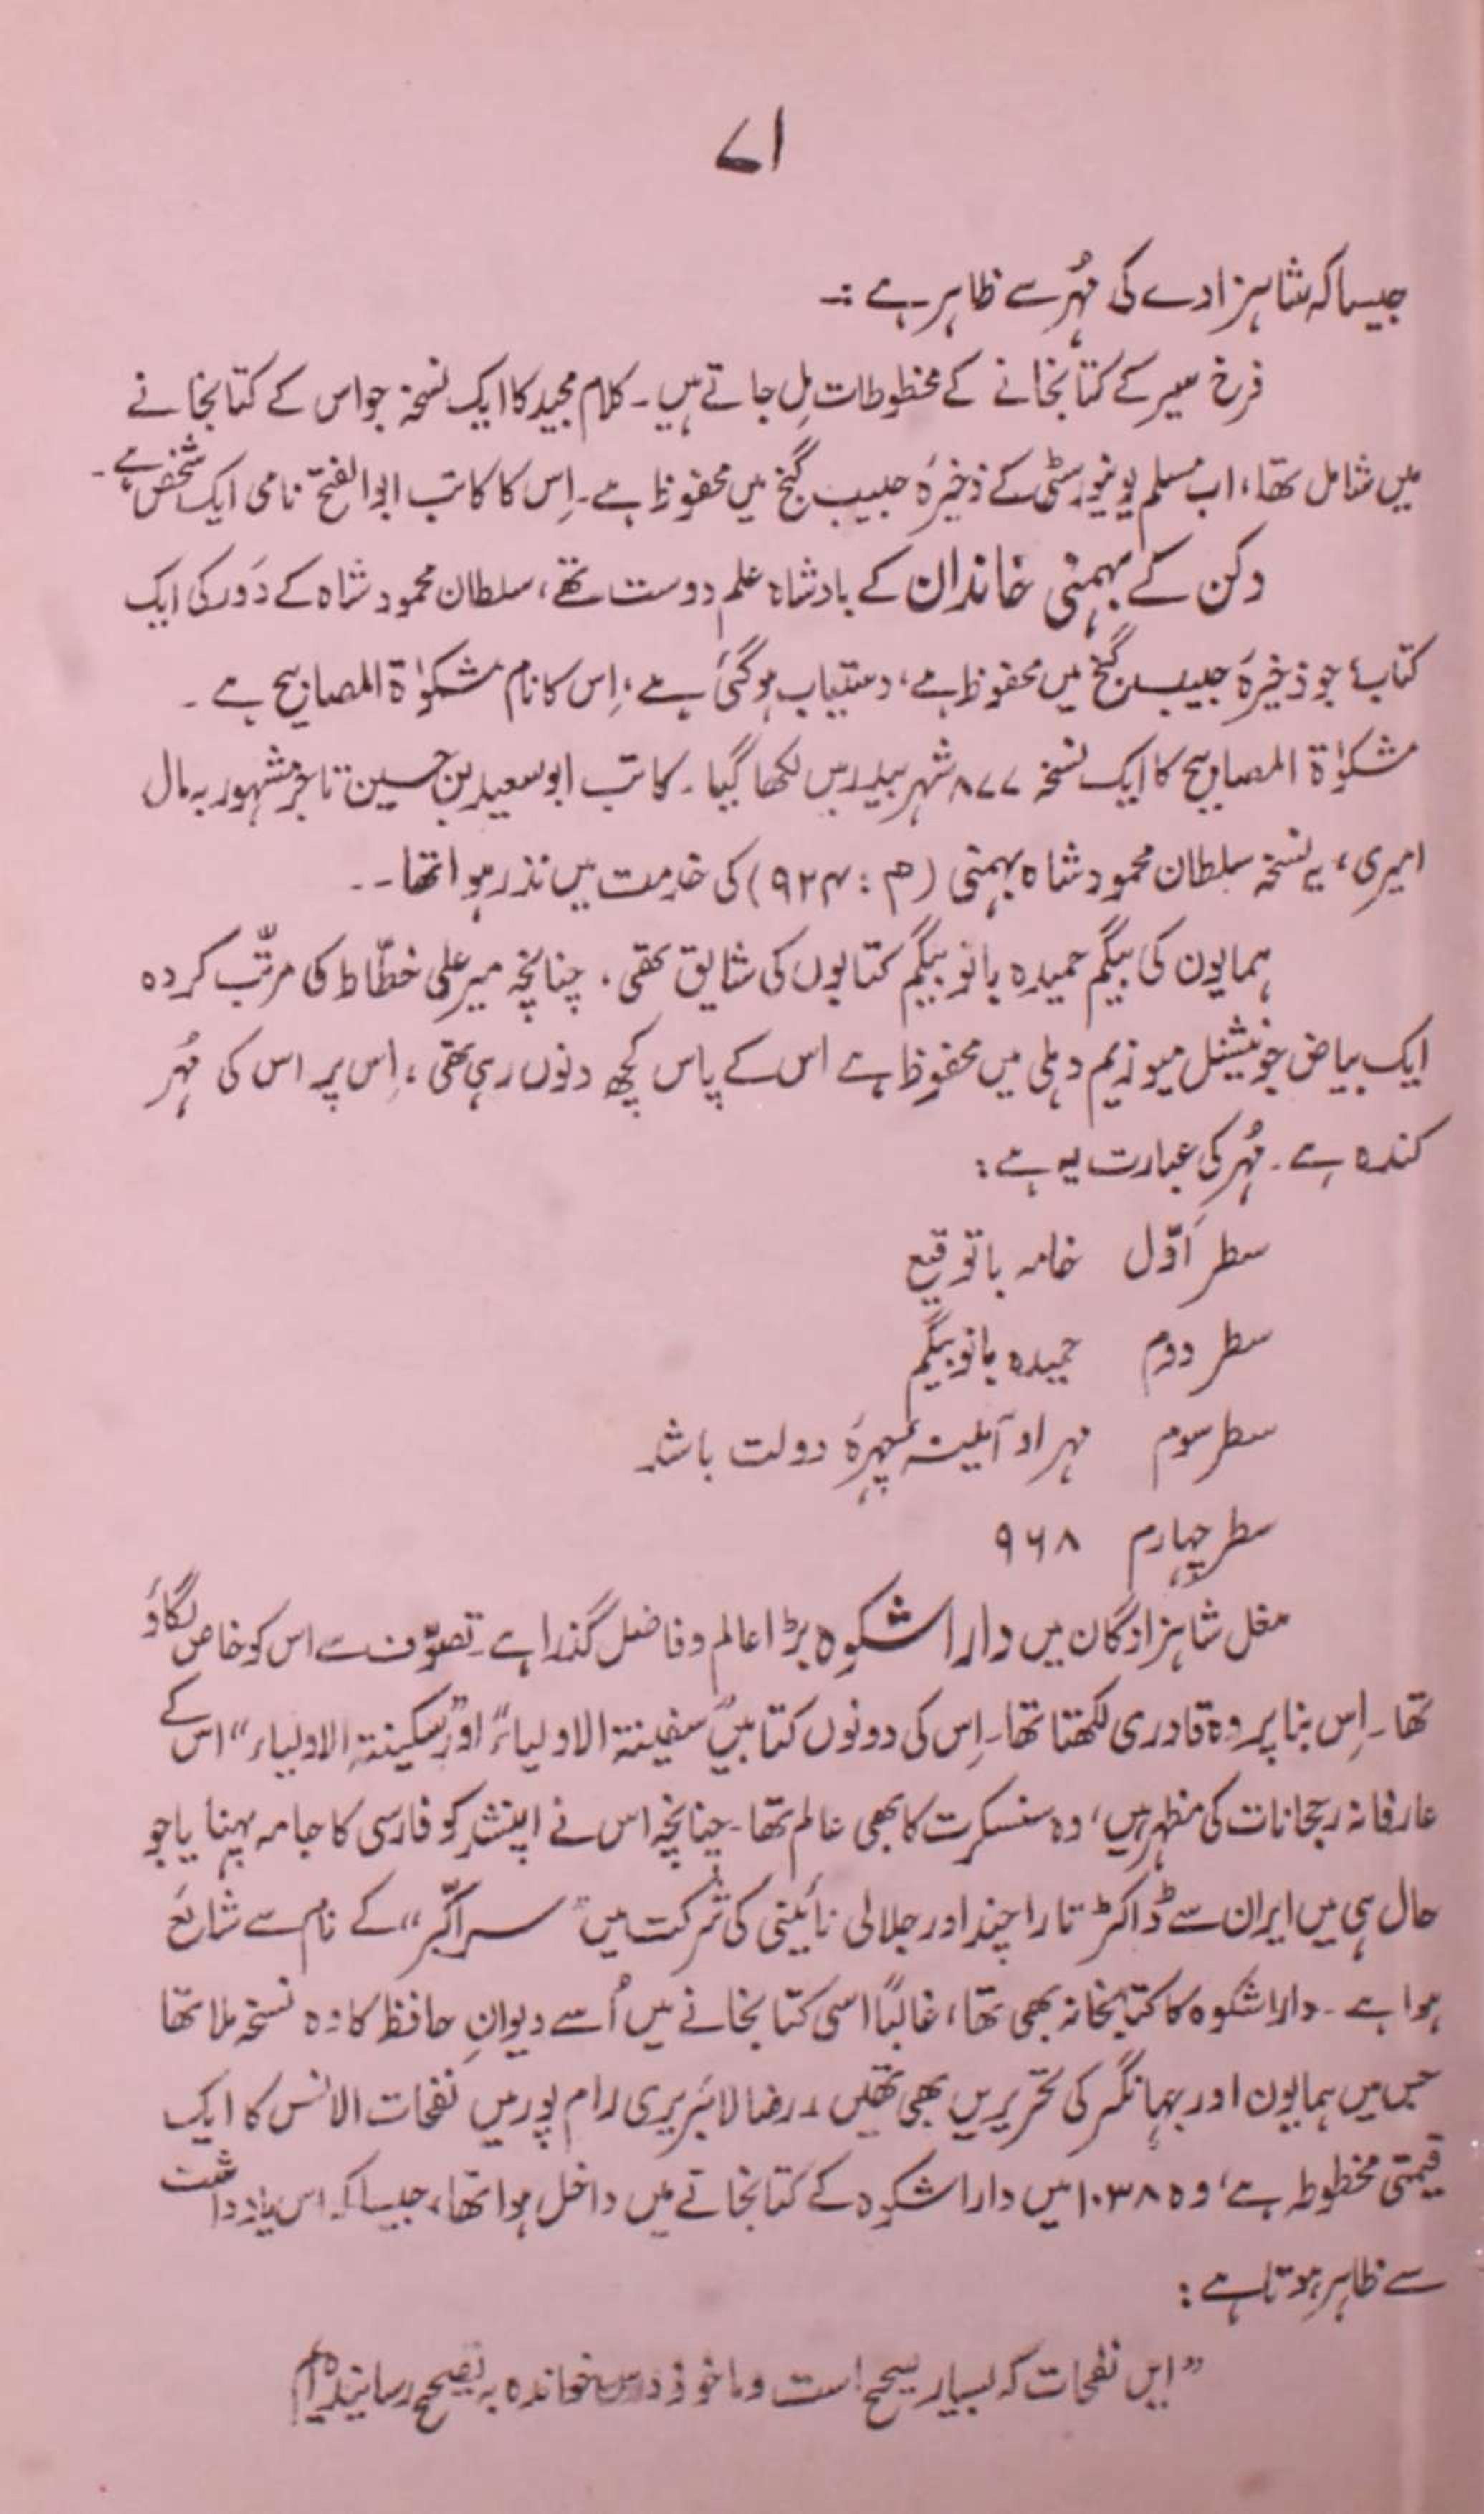 ۷۱
جیسا کہ شاہزادے کی مُہر سے ظاہر ہے :-
فرخ سیر کے کتابخانے کے مخطوطات مِل جاتے ہیں۔ کلام مجید کا ایک نسخہ جو اس کے کتابخانے
میں شامل تھا، اب مسلم یونیورسٹی کے ذخیرۂ حبیب گنج میں محفوظ ہے۔ اِس کا کاتب ابوالفتح نامی ایک شخص ہے۔
دکن کے بہمنی خاندان کے بادشاہ علم دوست تھے، سلطان محمود شاہ کے دَور کی ایک
کتاب جو ذخیرۂ حبیب گنج میں محفوظ ہے، دستیاب ہوگئی ہے، اِس کا نام مشکوٰۃ المصابیح ہے۔
مشکوٰۃ المصابیح کا ایک نسخہ ۸۷۷ شہر بیدر میں لکھا گیا۔ کاتب ابو سعید بن حسین تاجر مشہور بہ مال
امیری، یہ نسخہ سلطان محمود شاہ بہمنی (م : ۹۲۴) کی خدمت میں نذر ہوا تھا۔۔
ہمایون کی بیگم حمیدہ بانو بیگم کتابوں کی شایق تھی۔ چنانچہ میر علی خطّاط کی مرتّب کردہ
ایک بیاض جو نیشنل میوزیم دہلی میں محفوظ ہے اس کے پاس کچھ دنوں رہی تھی، اِس پر اس کی مُہر
کندہ ہے۔ مُہر کی عبارت یہ ہے :
سطر اَوّل خامہ با توقیع
سطر دوم حمیدہ بانو بیگم
سطر سوم مہر او آئینہ چہرۂ دولت باشد
سطر چہارم ۹۶۸
مغل شاہزادگان میں داراشکوہ بڑا عالم و فاضل گذرا ہے۔ تصوّف سے اس کو خاص لگاؤ
تھا۔ اِس بنا پر وہ قادری لکھتا تھا۔ اِس کی دونوں کتابیں ”سفینۃ الاولیاء“ اور ”سکینۃ الاولیاء“ اس کے
عارفانہ رجحانات کی مظہر ہیں، وہ سنسکرت کا بھی عالم تھا۔ چنانچہ اس نے اپنشد کو فارسی کا جامہ پہنایا جو
حال ہی میں ایران سے ڈاکٹر تارا چند اور جلالی نائینی کی شرکت میں ”سرِ اکبر“ کے نام سے شایع
ہوا ہے۔ داراشکوہ کا کتابخانہ بھی تھا، غالباً اسی کتابخانے میں اُسے دیوانِ حافظ کا وہ نسخہ ملا تھا
جس میں ہمایون اور جہانگیر کی تحریریں بھی تھیں۔ رضا لائبریری رام پور میں نفحات الانس کا ایک
قیمتی مخطوطہ ہے، وہ ۱۰۳۸ میں داراشکوہ کے کتابخانے میں داخل ہوا تھا، جیسا کہ اس یادداشت
سے ظاہر ہوتا ہے :
”ایں نفحات کہ بسیار صحیح است و ماخوذ درس خواندہ بہ تصحیح رسانیدہ ام